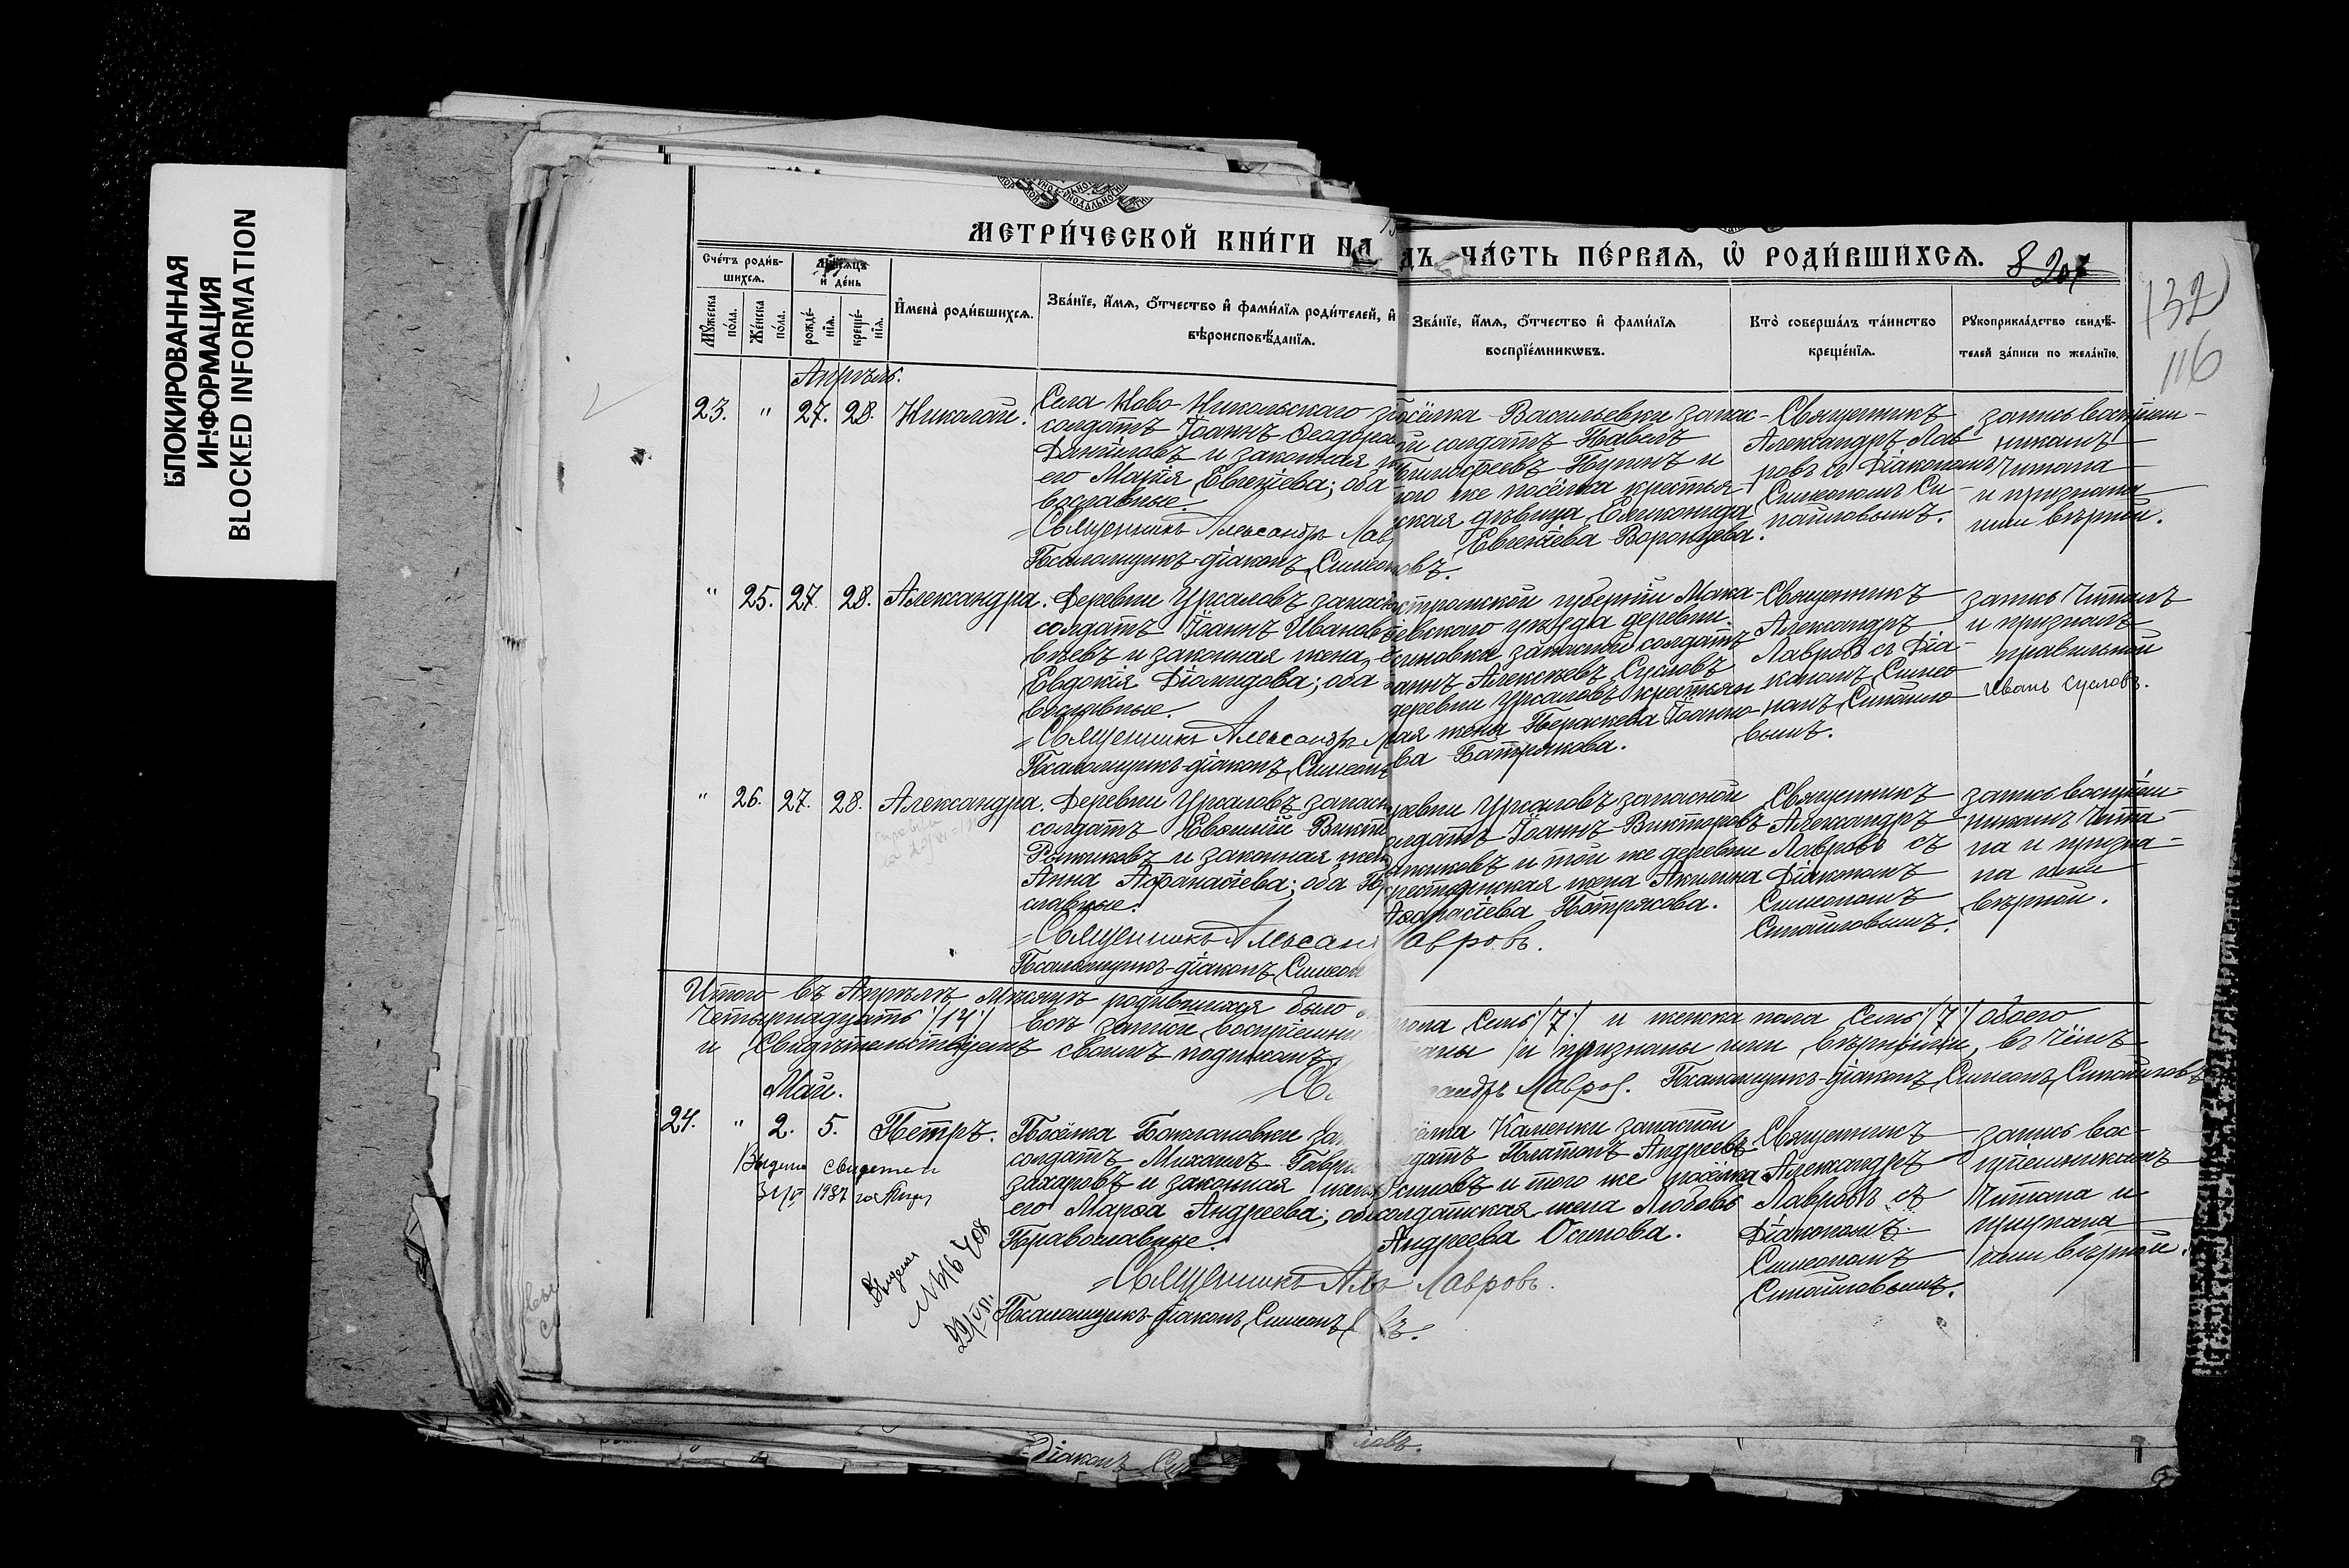 БЛОКИРОВАННАЯ
ИНФОРМАЦИЯ
BLOCKED INFORMATION
МЕТРИ́ЧЕСКОЙ КНИ́ГИ НА
ДЪ ЧА́СТЬ ПЕ́РВАЯ, Ѡ РОДИ́ВШИХСЯ.
8
132
116
Сче́тъ роди́в-
шихся.
Мѣсяцъ
и де́нь
Му́жеска
по́ла.
Же́нска
по́ла.
рожде́-
нїя.
креще́-
нїя.
Имена̀ роди́вшихся.
Зва́нїе, и́мя, о́тчество и фами́лїя роди́телей, и
вѣроисповѣ́данїя.
Зва́нїе, и́мя, о́тчество и фами́лїя
воспрїе́мниковъ.
Кто̀ соверша́лъ та́инство
креще́нїя.
Рукоприкла́дство свидѣ́-
телей за́писи по жела́нїю.
Апрѣль.
23. " 27. 28. Николай.
Села Ново-Никольскаго
солдатъ Іоаннъ Ѳеодоро
Даниловъ и законная
его Марія Евгеніева; оба
вославные.
Священникъ Александръ Лав
Псаломщикъ-діаконъ Симеон
посёлка Васильевки запас-
ой солдатъ Павелъ
Тимоѳеевъ и
того же посёлка крестья-
ская дѣвица
Евгеніева Воронцева.
овъ.
Священникъ
Александръ Лав-
ровъ съ Діакономъ
Симеономъ Си-
пайловымъ.
запись воспріем-
никамъ
читана
и признана
ими вѣрной.
" 25. 27. 28. Александра.
Деревни Урсаловъ запасн
солдатъ Іоаннъ Иванов
и законная жена
Евдокія Діомидова; оба
вославные.
Священникъ Александръ
Псаломщикъ-діаконъ Симеон
остромской губерніи Мака-
евскаго уѣзда деревни
запасной солдатъ
Іоаннъ Алексѣевъ Сусловъ
деревни Урсаловъ крестьян
ая жена Параскева Іоанно-
ва
Священникъ
Александръ
Лавровъ съ Діа-
кономъ Симео-
номъ Сипайло-
вымъ.
запись читалъ
и призналъ
правильной
Иванъ Сусловъ.
" 26. 27. 28. Александра.
Деревни Урсаловъ запасн
солдатъ Евѳимій Викто
Рыжиковъ и законная жен
Анна Аѳанасіева; оба Пр
славные.
Священникъ Алексан
Псаломщикъ-діаконъ Симеон
ревни Урсаловъ запасной
солдатъ Іоаннъ Викторовъ
ыжиковъ и той же деревни
крестьянская жена Акилина
Аѳанасіева
Лавровъ.
Священникъ
Александръ
Лавровъ съ
Діакономъ
Симеономъ
Сипайловымъ.
запись воспріем-
никамъ чита-
на и призна-
на ими
вѣрной.
Итого въ Апрѣлѣ мѣсяцѣ родившихся было
пола семь /7/ и женска пола семь /7/ обоего
четырнадцать /14/ Всѣ записи воспріемни
таны и признаны ими вѣрными, въ чёмъ
и свидѣтельствуемъ своимъ подписомъ
Св
андръ Лавровъ. Псаломщикъ-діаконъ Симеонъ Сипайловъ
Май.
24. " 2. 5. Петръ.
Посёлка Баклановки за
солдатъ Михаилъ Гаври
Захаровъ и законная жена
его Марѳа Андреева; оба
Православные.
Священникъ Ал
Псаломщикъ-діаконъ Симеонъ
сёлка Каменки запасной
датъ Платонъ Андреевъ
Осиповъ и того же посёлка
солдатская жена Любовь
Андреева Осипова.
Лавровъ.
въ.
Священникъ
Александръ
Лавровъ съ
Діакономъ
Симеономъ
Сипайловымъ.
запись вос-
пріемникамъ
читана и
признана
ими вѣрной.
1937
Діаконъ